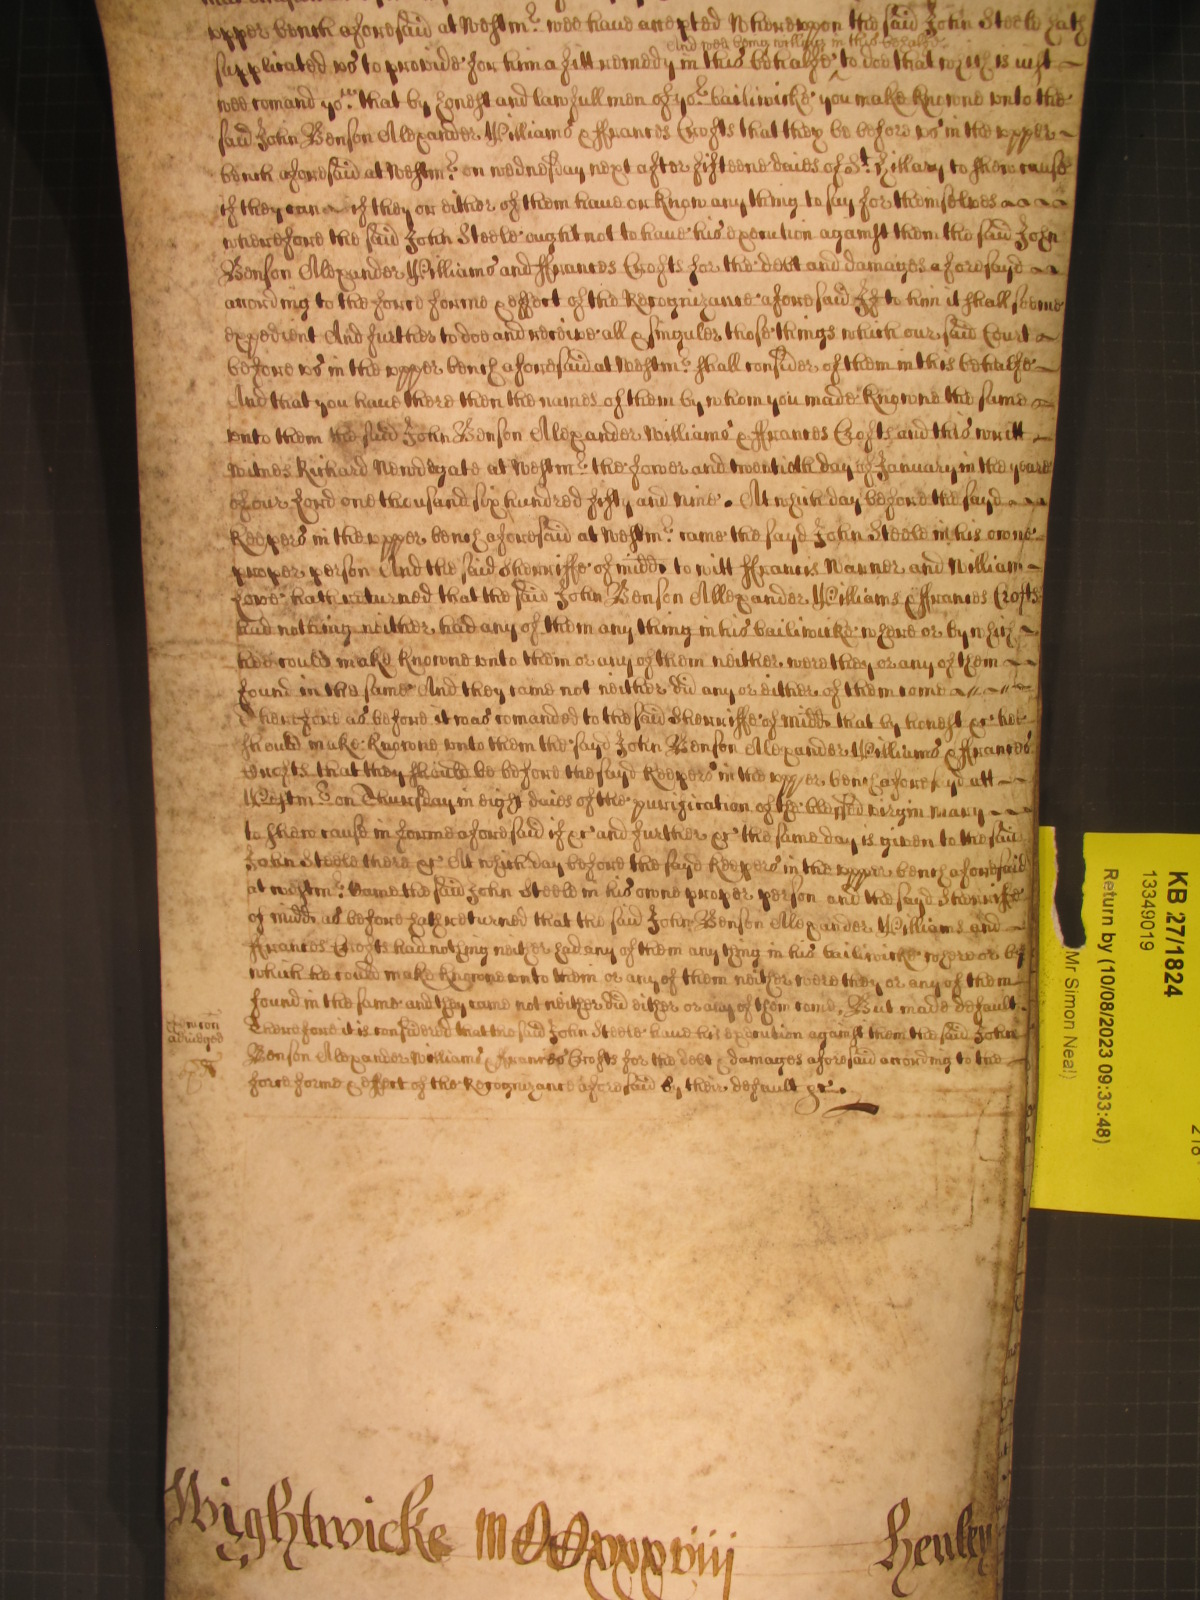 upper bench aforesaid at Westmr. wee have accepted Whereuppon the said John Steele hath
And wee being willing in this behalfe
supplicated us to provide for him a fitt remedy in this behalfe to doe that which is just
wee comand you that by honest and lawfull men of yor. bailiwicke you make knowne unto the
said John Benson Alexander Williams & ffrances Crofts that they be before us in the upper
bench aforesaid at Westmr. on wednesday next after fifteene daies of St. Hillary to shew cause
if they can if they or either of them have or know any thing to say for themselves
wherefore the said John Steele ought not to have his execution against them the said John
Benson Alexander Williams and ffrances Crofts for the debt and damages aforesayd
according to the force forme & effect of the Recognizance aforesaid If to him it shall seeme
expedient And further to doe and receive all & singuler those things which our said Court
before us in the upper bench aforesaid at Westmr. shall consider of them in this behalfe
And that you have there then the names of them by whom you made knowne the same
unto them the said John Benson Alexander Williams & ffrances Crofts and this writt
Witnes Richard Newdegate at Westmr. the fower and twentieth day of January in the yeare
of our Lord one thousand six hundred fifty and nine. At which day before the sayd
Keepers in the upper bench aforesaid at Westmr. came the sayd John Steele in his owne
proper person And the said Sherriffe of midd. to witt ffrancis Warner and William
Love hath returned that the said John Benson Allexander Williams & ffrances Crofts
had nothing neither had any of them any thing in his bailiwicke where or by which
hee could make knowne unto them or any of them neither were they or any of them
found in the same And they came not neither did any or either of them come
Therefore as before it was comanded to the said Sherriffe of midd. that by honest &c hee
should make knowne unto them the sayd John Benson Alexander Williams & ffrances
Crofts that they should be before the sayd Keepers in the upper bench aforesayd att
Westmr. on Thursday in eight daies of the purification of the blessed virgin mary
to shew cause in forme aforesaid if &c and further &c the same day is given to the said
John Steele there &c At which day before the sayd Keepers in the upper bench aforesaid
at westmr. Came the said John Steele in his owne proper person and the sayd Sherriffe
of midd. as before hath returned that the said John Benson Alexander Williams and
ffrances Crofts had nothing neither had any of them any thing in his bailiwicke where or by
which he could make knowne unto them or any of them neither were they or any of them
found in the same and they came not neither did either or any of them come. But made default.
Therefore it is considered that the said John Steele have his execution against them the said John
adiudged
Benson Alexander Williams & ffrances Crofts for the debt & damages aforesaid according to the
force forme & effect of the Recognizance aforesaid by their default &c.
Wightwicke MCCxxxviii Henley
KB 27/1824
13349019
Return by (10/08/2023 09:33:48)
Mr Simon Neal)